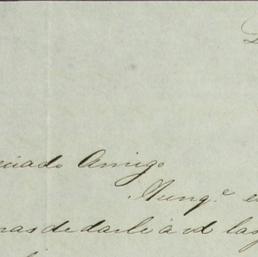 ciado Amigo
Aunq.e
nas de darle á vd las